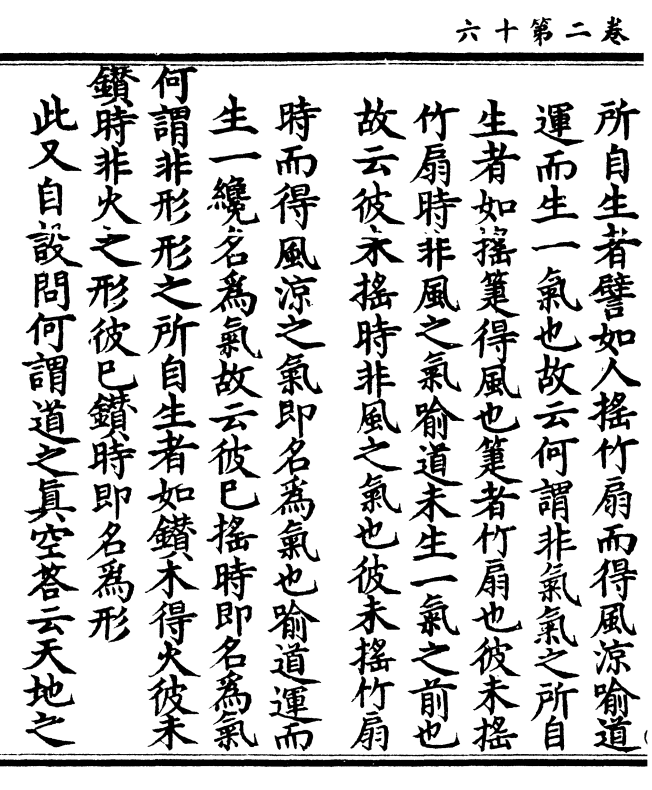 卷二第十六
所自生者譬如人搖竹扇而得風涼喻道
運而生一氣也故云何謂非氣氣之所自
生者如搖箑得風也箑者竹扇也彼未搖
竹扇時非風之氣喻道未生一氣之前也
故云彼未搖時非風之氣也彼未搖竹扇
時而得風涼之氣即名爲氣也喻道運而
生一纔名爲氣故云彼已搖時即名爲氣
何謂非形形之所自生者如鑚木得火彼未
鑚時非火之形彼已鑚時即名爲形
此又自設問何謂道之眞空荅云天地之